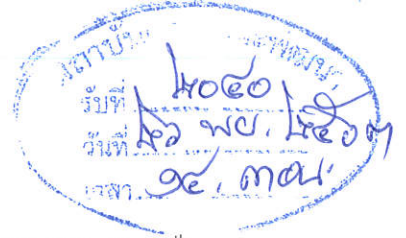 สถาบัน
รับที่ ๒๐๔๐
วันที่ ๒๖ พย. ๒๕๖๓
เวลา ๑๔.๓๐น.